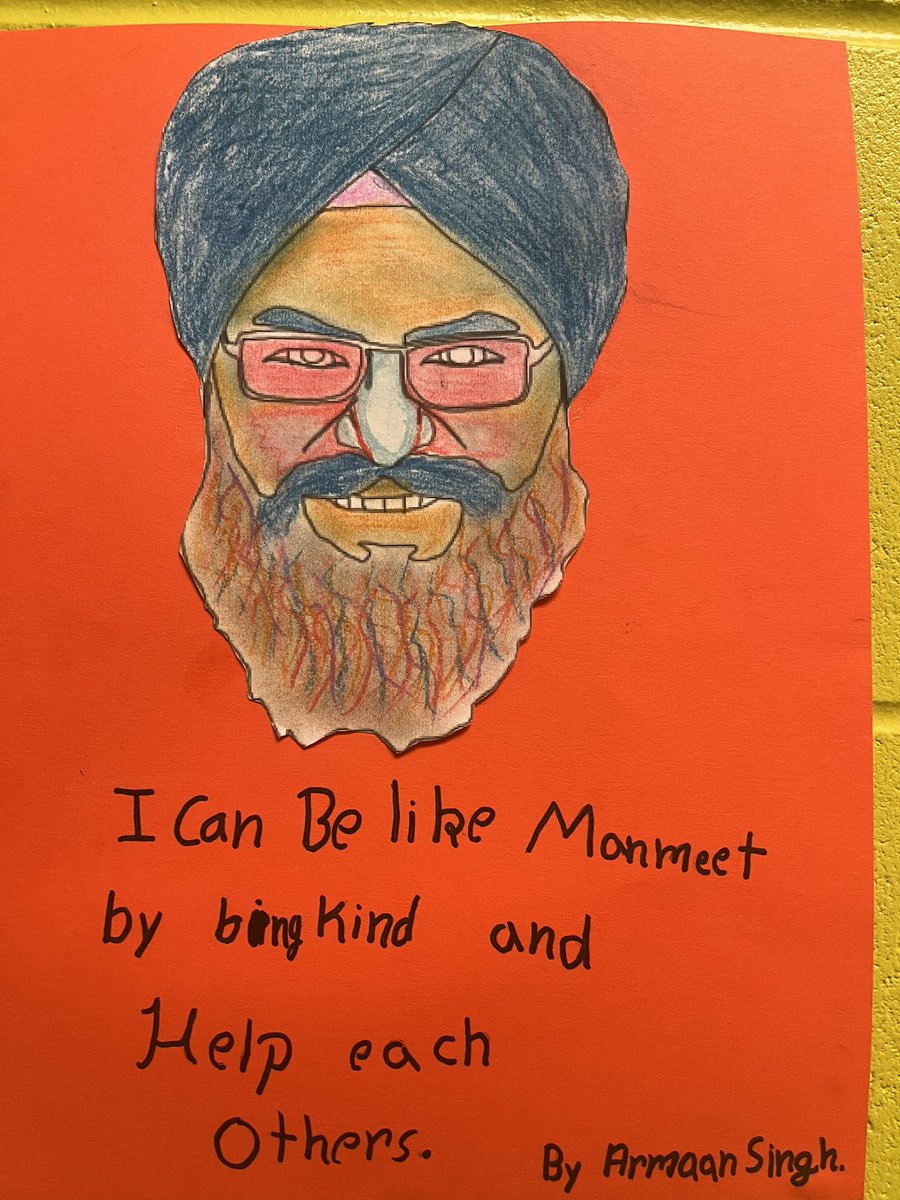 I Can Be like Manmeet
by bing Kind and
Help each
Others.
By Armaan Singh.